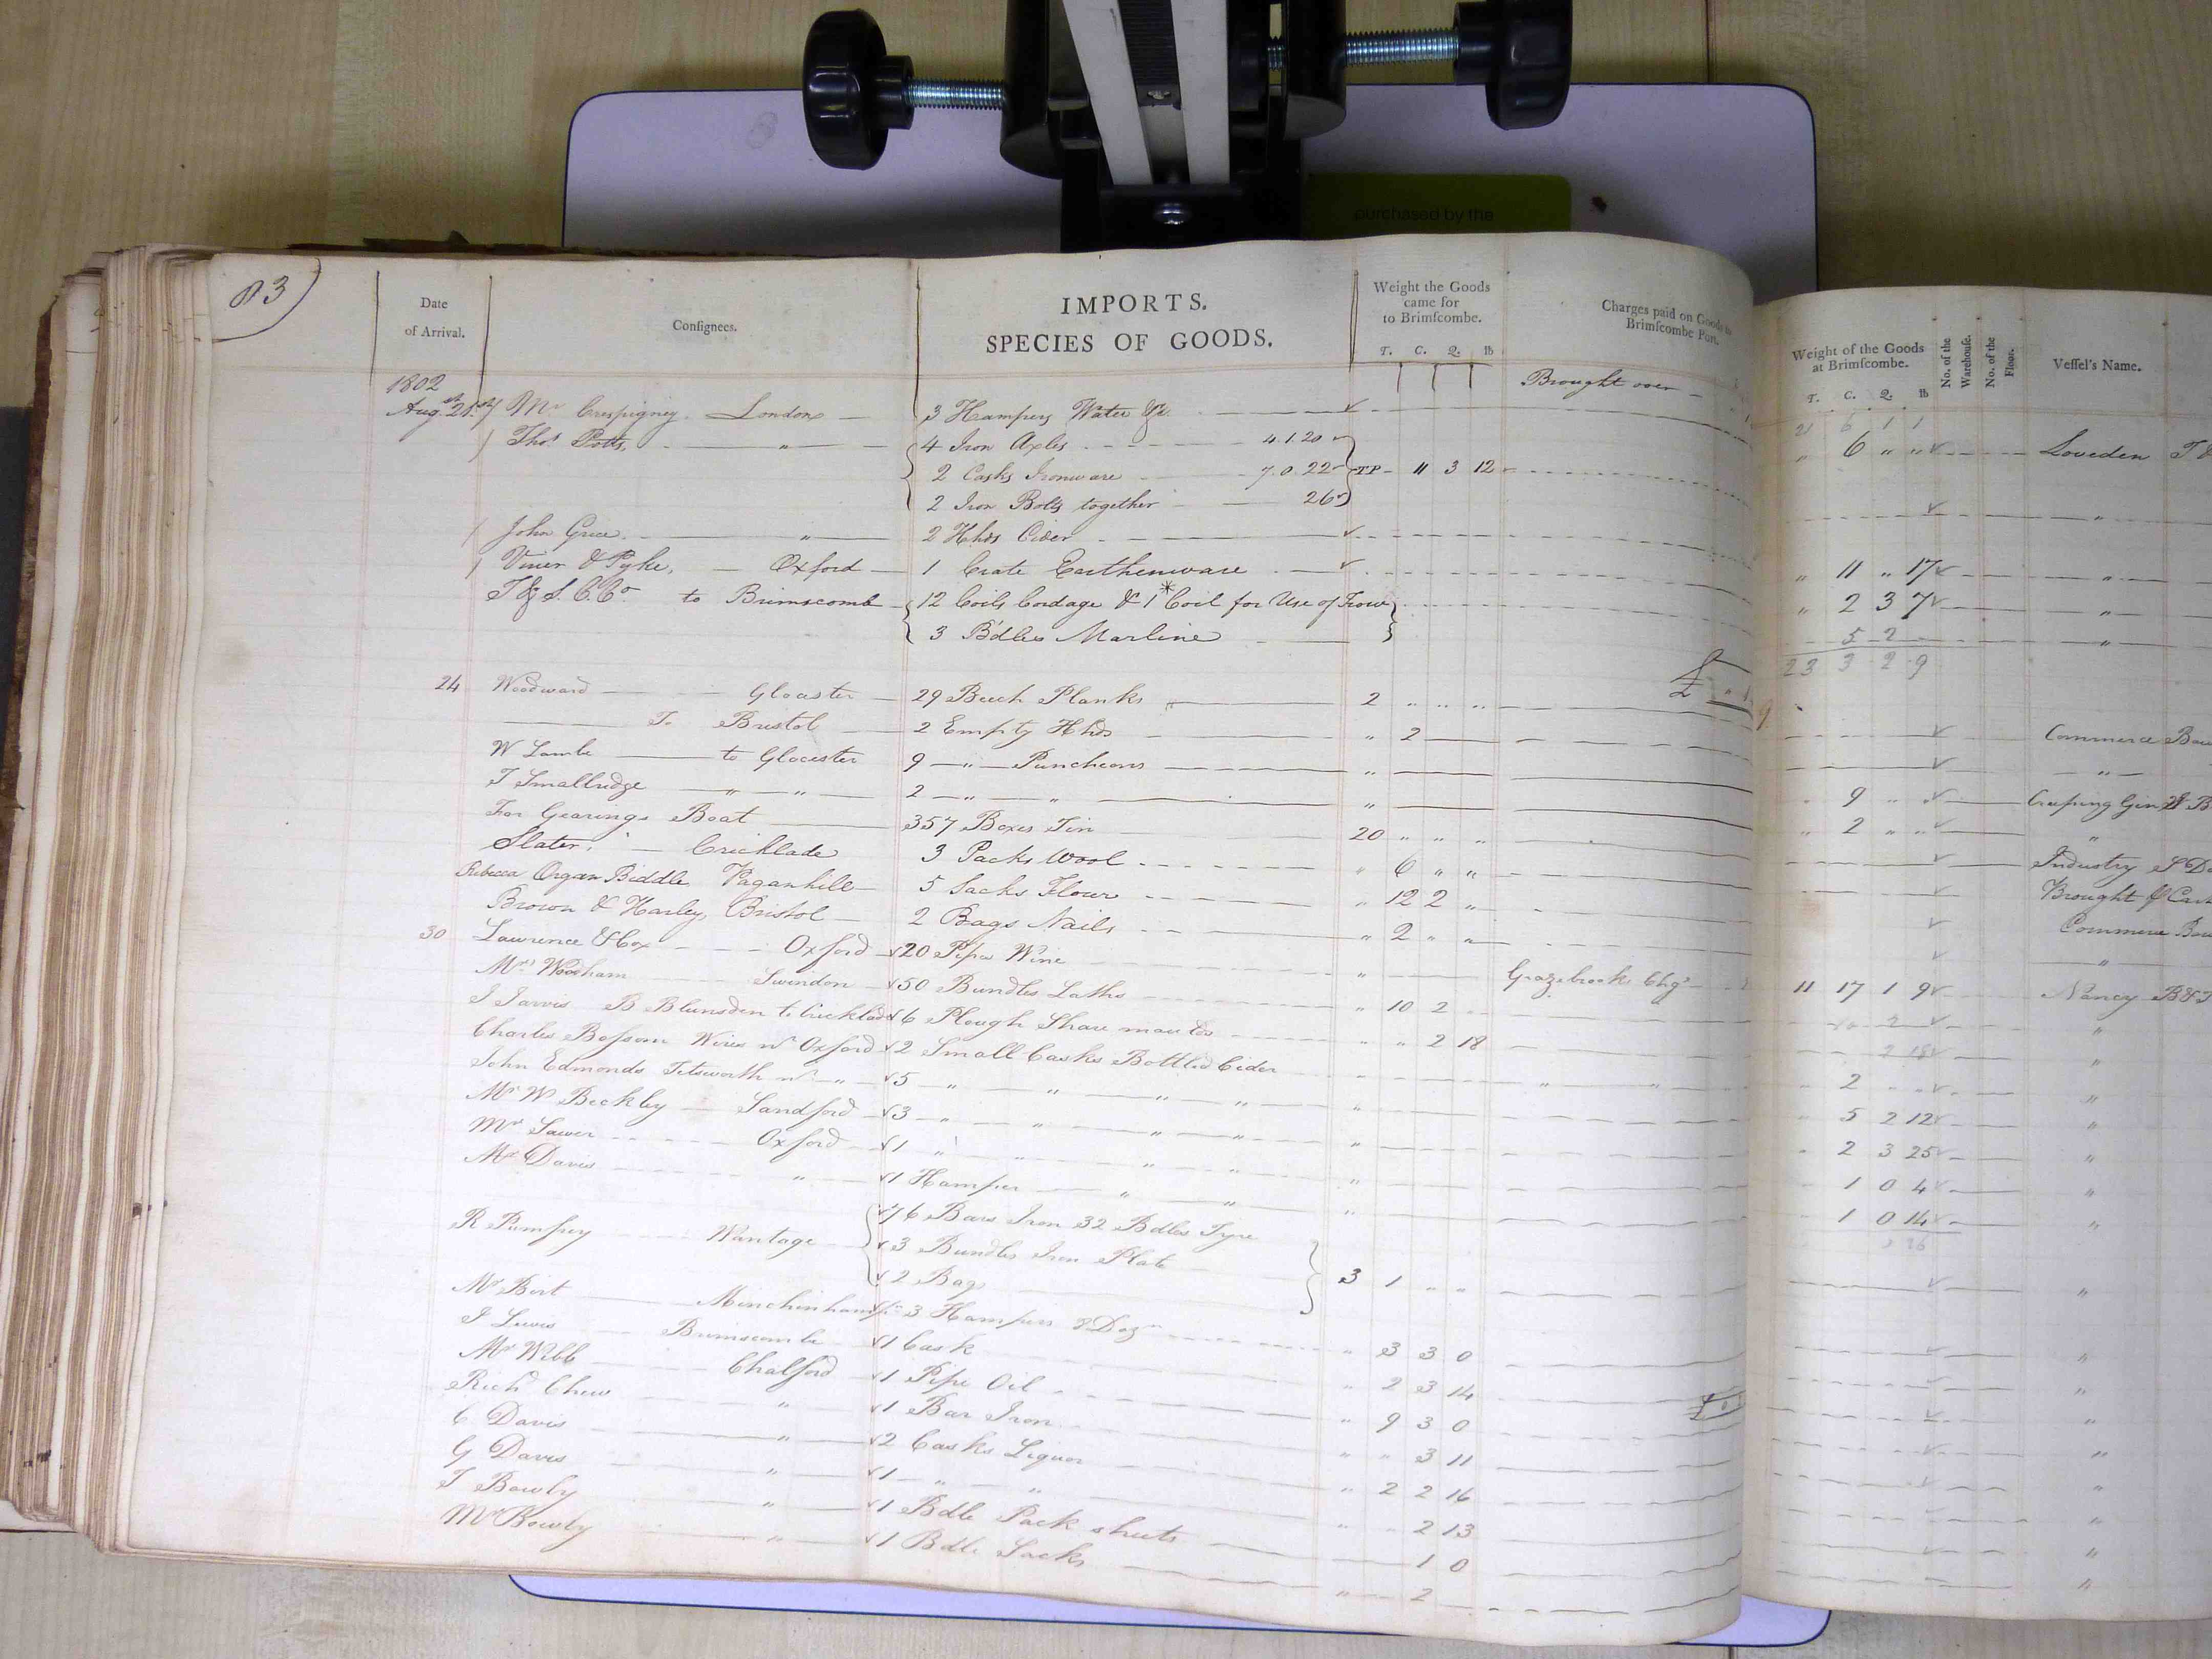 purchased by the
83)
Date of Arrival.
Consignees.
IMPORTS.
SPECIES OF GOODS.
Weight the Goods came for to Brimscombe.
T. C. Q. lb
Charges paid on Goods to Brimscombe Port.
Weight of the Goods at Brimscombe.
T. C. Q. lb
No. of the Warehouse.
No. of the Floor.
Vessel's Name.
1802
Brought over
21 6 1 1
Aug. 21st Mr Crespigney London 3 Hampers Water &c 6 " " Loveden T &
Thos Potts " 4 Iron Axles 4.1.20
2 Casks Ironware 7.0.22 TP 11 3 12 "
2 Iron Bolts together 26
John Grice " 2 Hhds Cider " 11 " 17 "
Viner & Pyke, Oxford 1 Crate Earthenware " 2 3 7 "
T & S. C. Co. to Brimscomb 12 Coils Cordage & 1* Coil for Use of Trow 5 2 "
3 Bdles Marline 23 3 2 9
24 Woodward Glocester 29 Beech Planks 2 " " " Commerce
To Bristol 2 Empty Hhds " 2 "
W Lambe to Glocester 9 " Puncheons " 9 " "
T Smallridge " " 2 " " " 2 " " "
For Gearings Boat 357 Boxes Tin 20 " " " Industry
Slater, Cricklade 3 Packs Wool " 6 " " Brought
Rebecca Organ Biddle, Paganhill 5 Sacks Flour " 12 2 " Commerce
Brown & Harley, Bristol 2 Bags Nails " 2 " " "
30 Lawrence & Cox Oxford 20 Pipes Wine " Grazebrooks Chgs 11 17 1 9 Nancy
Mrs Woodham Swindon 50 Bundles Laths " 10 2 "
J Jarvis B Blunsden to Cricklade 6 Plough Share moulds " " 2 18 2 18 "
Charles Bossom Wires nr Oxford 2 Small Casks Bottled Cider " 2 " " "
John Edmonds Tetsworth nr " 5 " " " " " 5 2 12 "
Mr W Beckley Sandford 3 " " " " " 2 3 25 "
Mr Sawer Oxford 1 " " " " " 1 0 4 "
Mr Davis " 1 Hamper " " " 1 0 14 "
76 Bars Iron 32 Bdles Tyre
R Pumfrey Wantage 3 Bundles Iron Plate 3 1 " " "
2 Bags
Mr Birt Minchinhampn 3 Hampers 8 Dozn " 3 3 0 "
J Lewis Brimscombe 1 Cask " 2 3 14 "
Mr Webb Chalford 1 Pipe Oil " 9 3 0 "
Richd Chew " 1 Bar Iron " " 3 11 "
C Davis " 2 Casks Liquor " 2 2 16 "
G Davis " 1 " " " " 2 13 "
T Bowly " 1 Bdle Pack sheets 1 0 "
Mr Bowly " 1 Bdle Sacks " 2 "